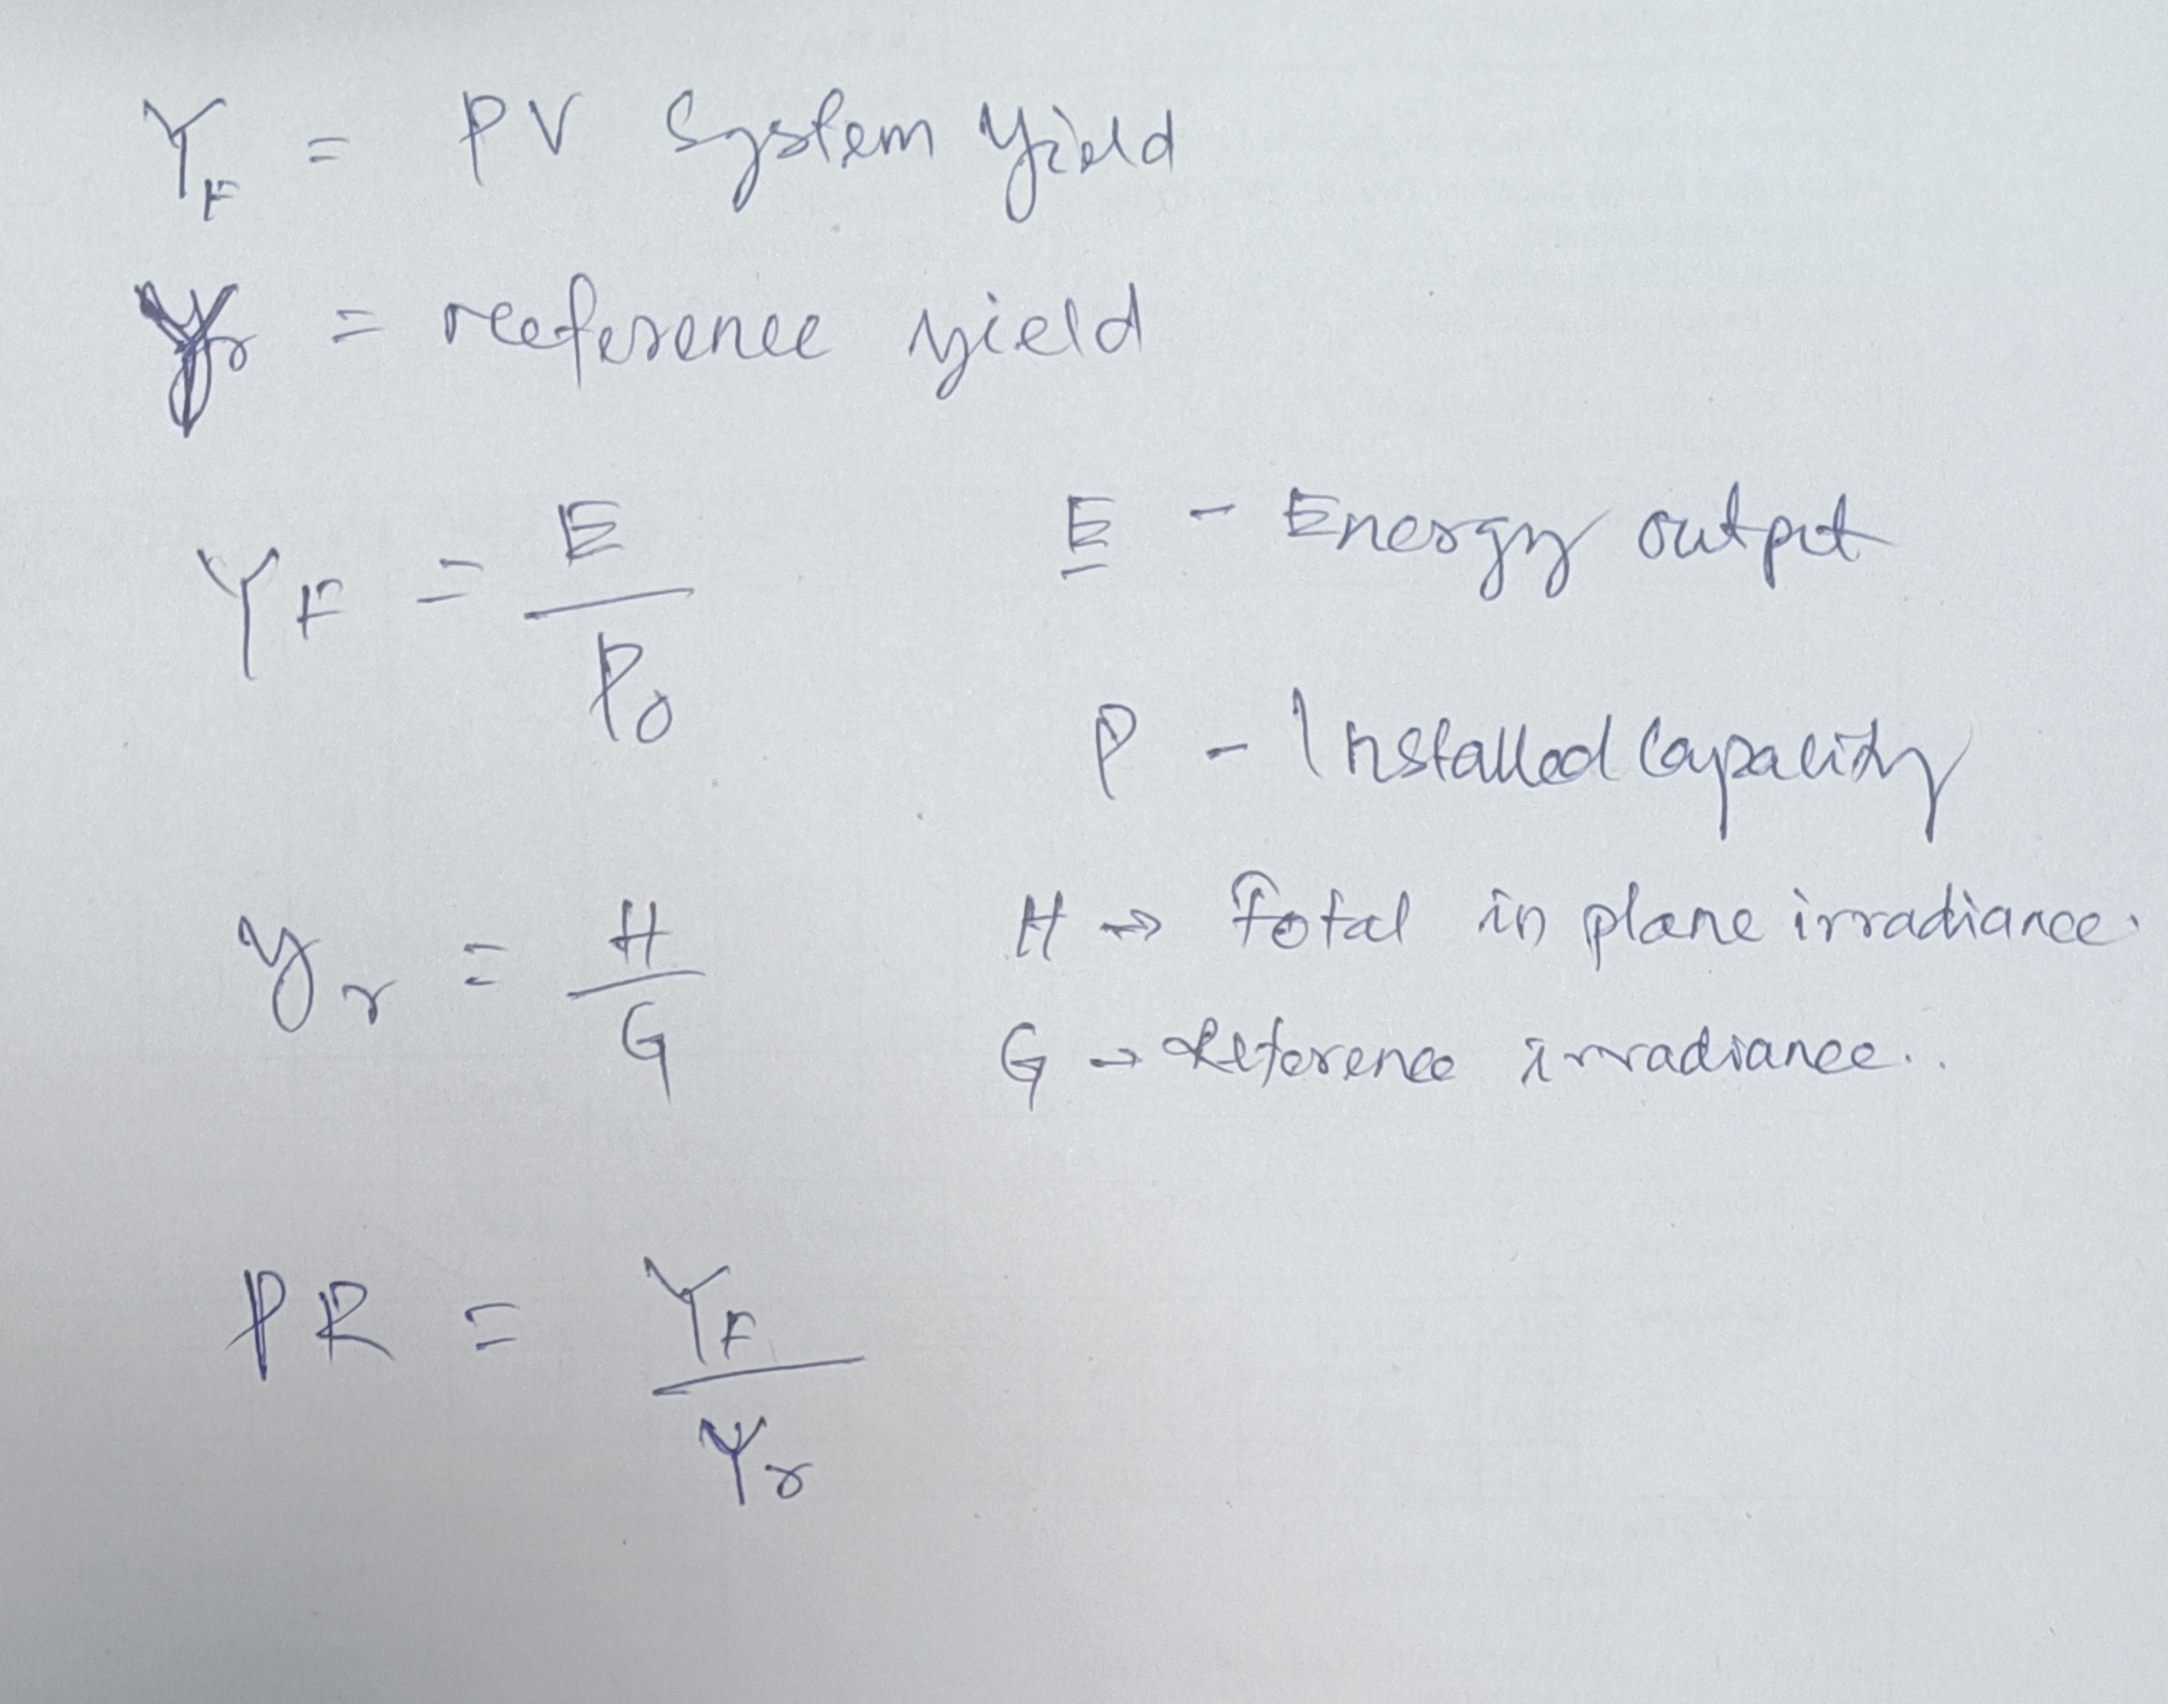 Y_F = PV System Yield
Y_r = reeference yield
Y_F = E / P_0 E - Energy output
P - Installed Capacity
y_r = H / G H → Total in plane irradiance.
G → Reference irradiance..
PR = Y_F / Y_r